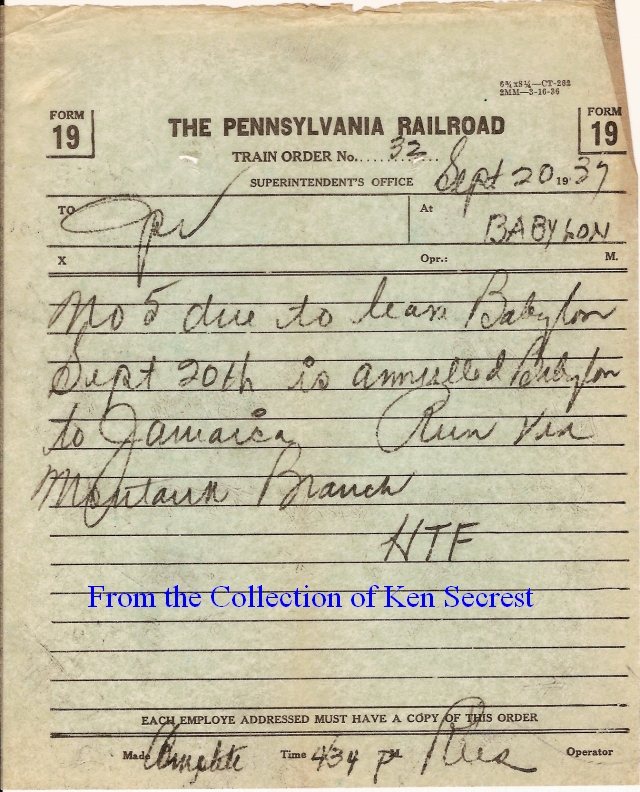 6¾x8¼—CT-262
2MM—3-16-36
FORM 19
THE PENNSYLVANIA RAILROAD
FORM 19
TRAIN ORDER No. 32
SUPERINTENDENT'S OFFICE Sept 20 1937
TO Opr
At BABYLON
X Opr.: M.
No 5 due to leave Babylon
Sept 20th is annulled Babylon
to Jamaica Run Via
Montauk Branch
HTF
From the Collection of Ken Secrest
EACH EMPLOYE ADDRESSED MUST HAVE A COPY OF THIS ORDER
Made Complete Time 434 P M Operator